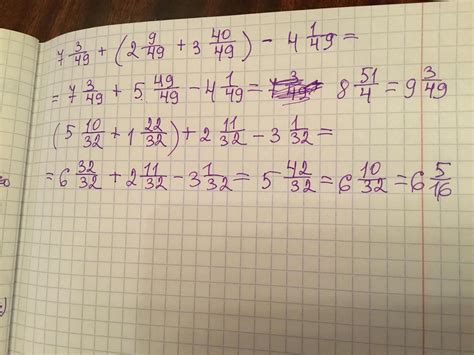 7 3/49 + (2 9/49 + 3 40/49) - 4 1/49 =
= 7 3/49 + 5 49/49 - 4 1/49 = 8 51/4 = 9 3/49
(5 10/32 + 1 22/32) + 2 11/32 - 3 1/32 =
= 6 32/32 + 2 11/32 - 3 1/32 = 5 42/32 = 6 10/32 = 6 5/16